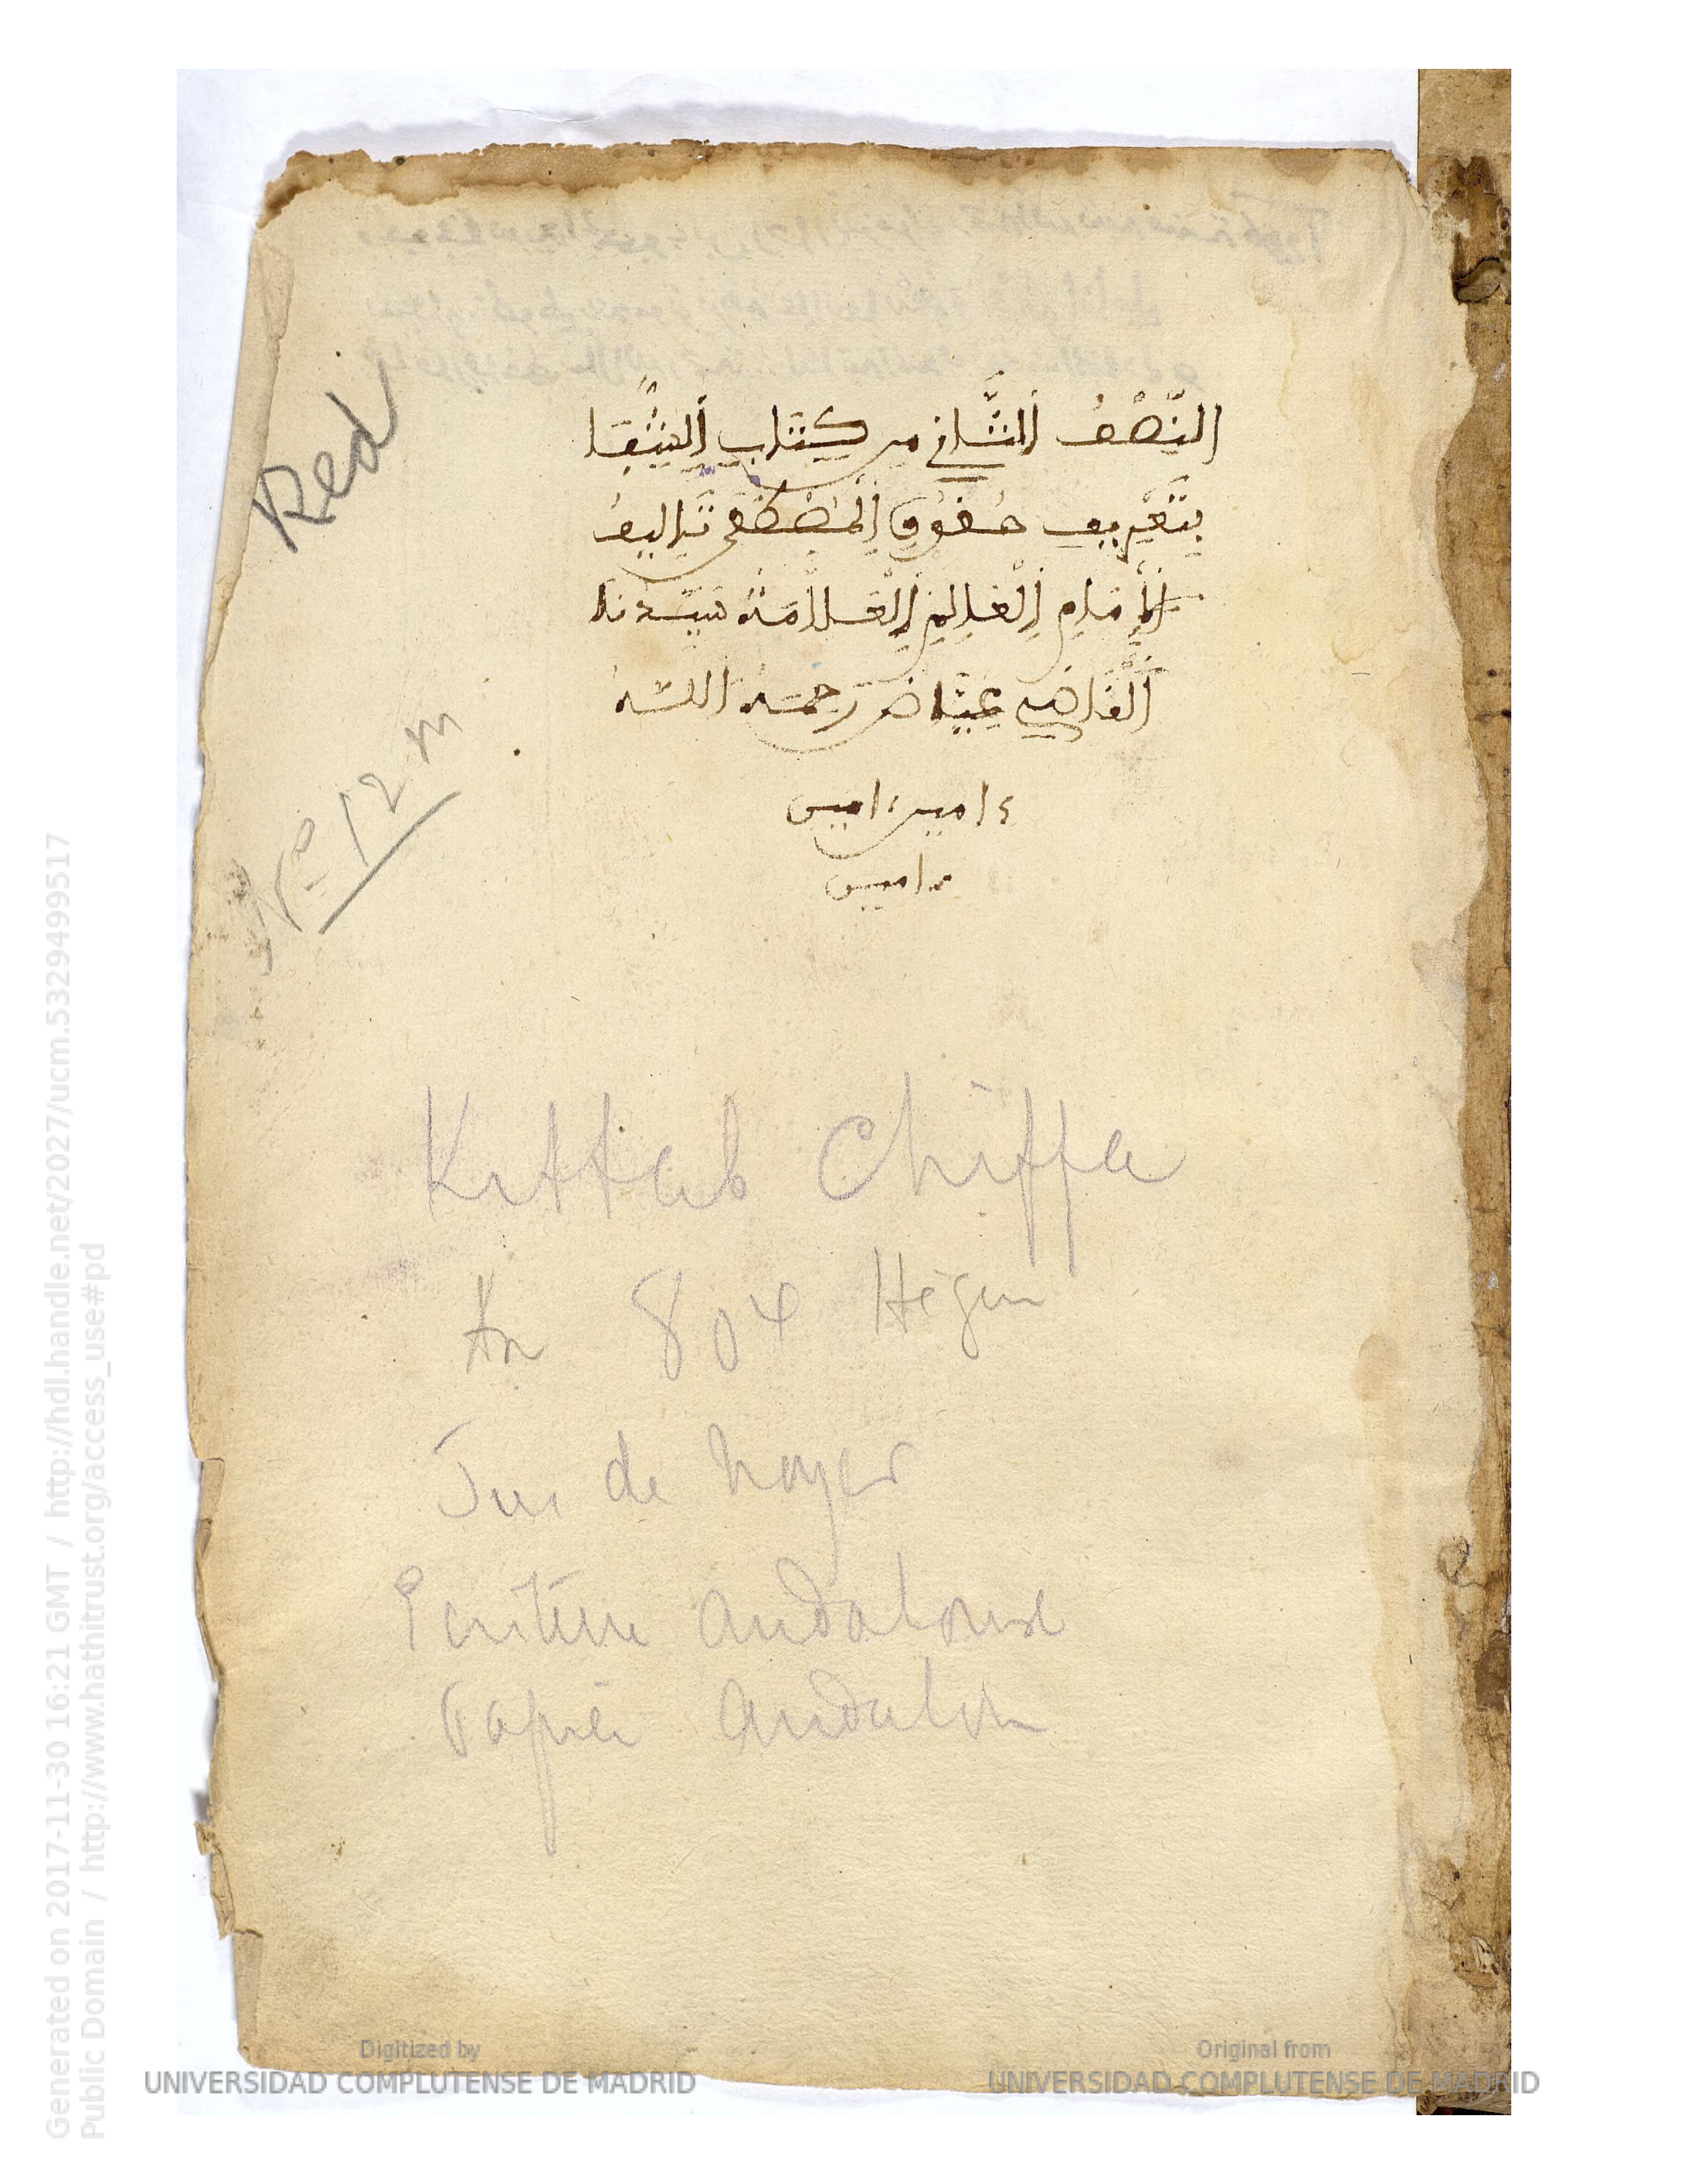 النِّصْفُ الثَّانِي مِن كِتَابِ الشِّفَا
بِتَعْرِيفِ حُقُوقِ الْمُصْطَفَى تَالِيفُ
الْإِمَامِ الْعَالِمِ الْعَلَّامَةُ سَيِّدنَا
الْقَاضِي عِيَّاض رَحِمَهُ اللَّه
ءامين ءامين
ءامين
Red
Nº 12 m
Kittab Chiffa
An 804 Hégire
Jus de noyer
Ecriture andalouse
Papier andalou
Digitized by
UNIVERSIDAD COMPLUTENSE DE MADRID
Original from
UNIVERSIDAD COMPLUTENSE DE MADRID
Generated on 2017-11-30 16:21 GMT / http://hdl.handle.net/2027/ucm.5329499517
Public Domain / http://www.hathitrust.org/access_use#pd